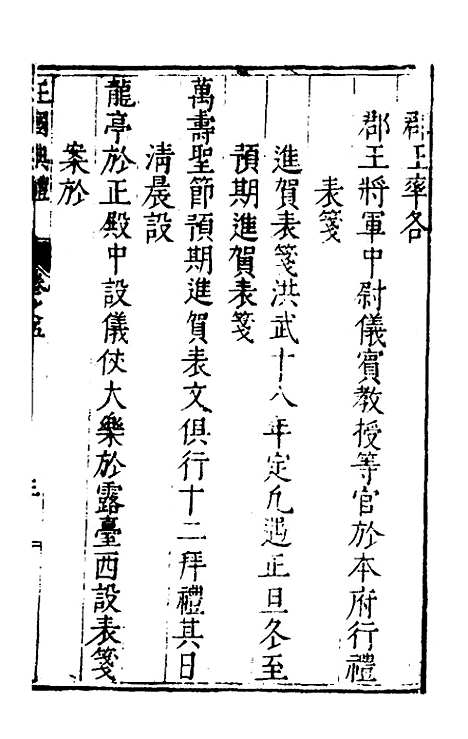 郡王率各
郡王將軍中尉儀賓教授等官於本府行禮
表箋
進賀表箋洪武十八年定凡遇正旦冬至
預期進賀表箋
萬壽聖節預期進賀表文俱行十二拜禮其日
清晨設
龍亭於正殿中設儀仗大樂於露臺西設表箋
案於
王國典禮 卷之五